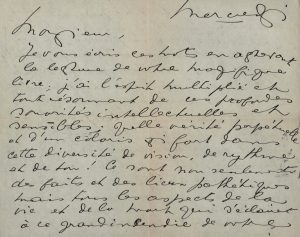 Mercredi
Monsieur,
Je vous écris ces mots en achevant
la lecture de votre magnifique
livre; j'ai l'esprit multiplié et
tout résonnant de ces profondes
sonorités intellectuelles et
sensibles, quelle vérité perpétuelle
et d'un éclairs si fort dans
cette diversité de vision, de rythme
et de ton! Ce sont non seulement
de faits et des lieux pathétiques
mais tous les aspects de la
vie et de la mort qui s'éclairent
à ce grand incendie de votre